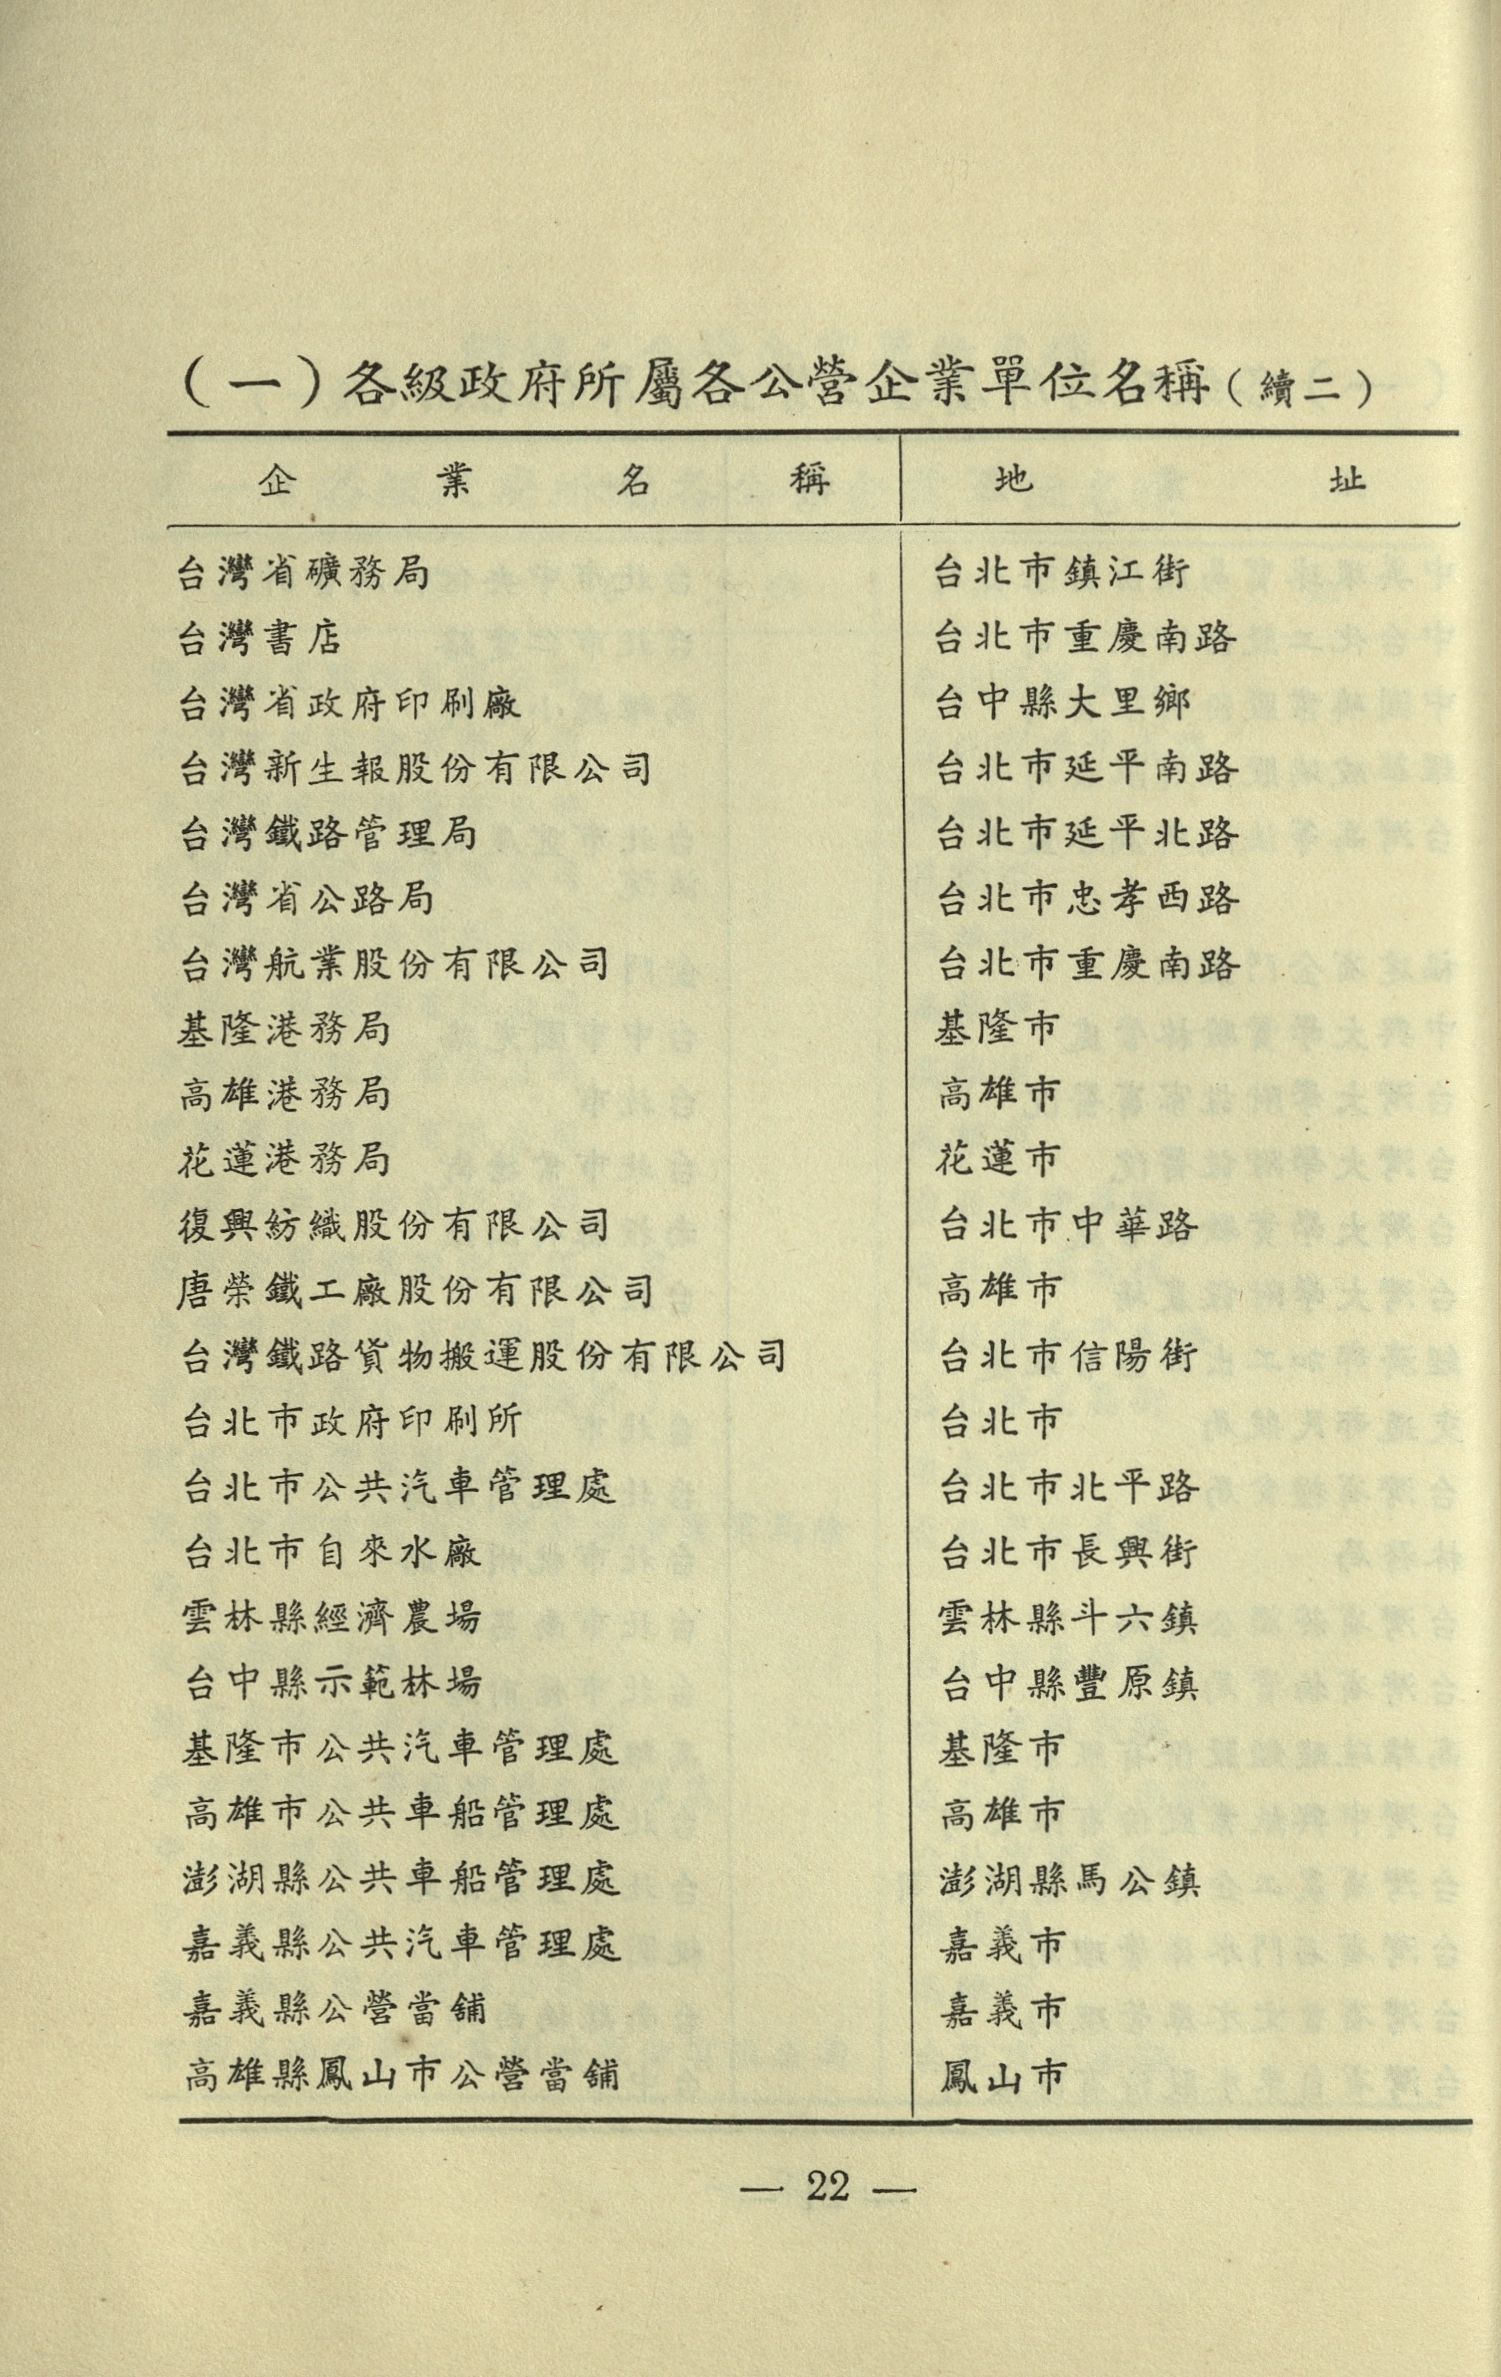 (一)各級政府所屬各公營企業單位名稱(續二)
企業名稱 地址
台灣省礦務局 台北市鎮江街
台灣書店 台北市重慶南路
台灣省政府印刷廠 台中縣大里鄉
台灣新生報股份有限公司 台北市延平南路
台灣鐵路管理局 台北市延平北路
台灣省公路局 台北市忠孝西路
台灣航業股份有限公司 台北市重慶南路
基隆港務局 基隆市
高雄港務局 高雄市
花蓮港務局 花蓮市
復興紡織股份有限公司 台北市中華路
唐榮鐵工廠股份有限公司 高雄市
台灣鐵路貨物搬運股份有限公司 台北市信陽街
台北市政府印刷所 台北市
台北市公共汽車管理處 台北市北平路
台北市自來水廠 台北市長興街
雲林縣經濟農場 雲林縣斗六鎮
台中縣示範林場 台中縣豐原鎮
基隆市公共汽車管理處 基隆市
高雄市公共車船管理處 高雄市
澎湖縣公共車船管理處 澎湖縣馬公鎮
嘉義縣公共汽車管理處 嘉義市
嘉義縣公營當舖 嘉義市
高雄縣鳳山市公營當舖 鳳山市
— 22 —